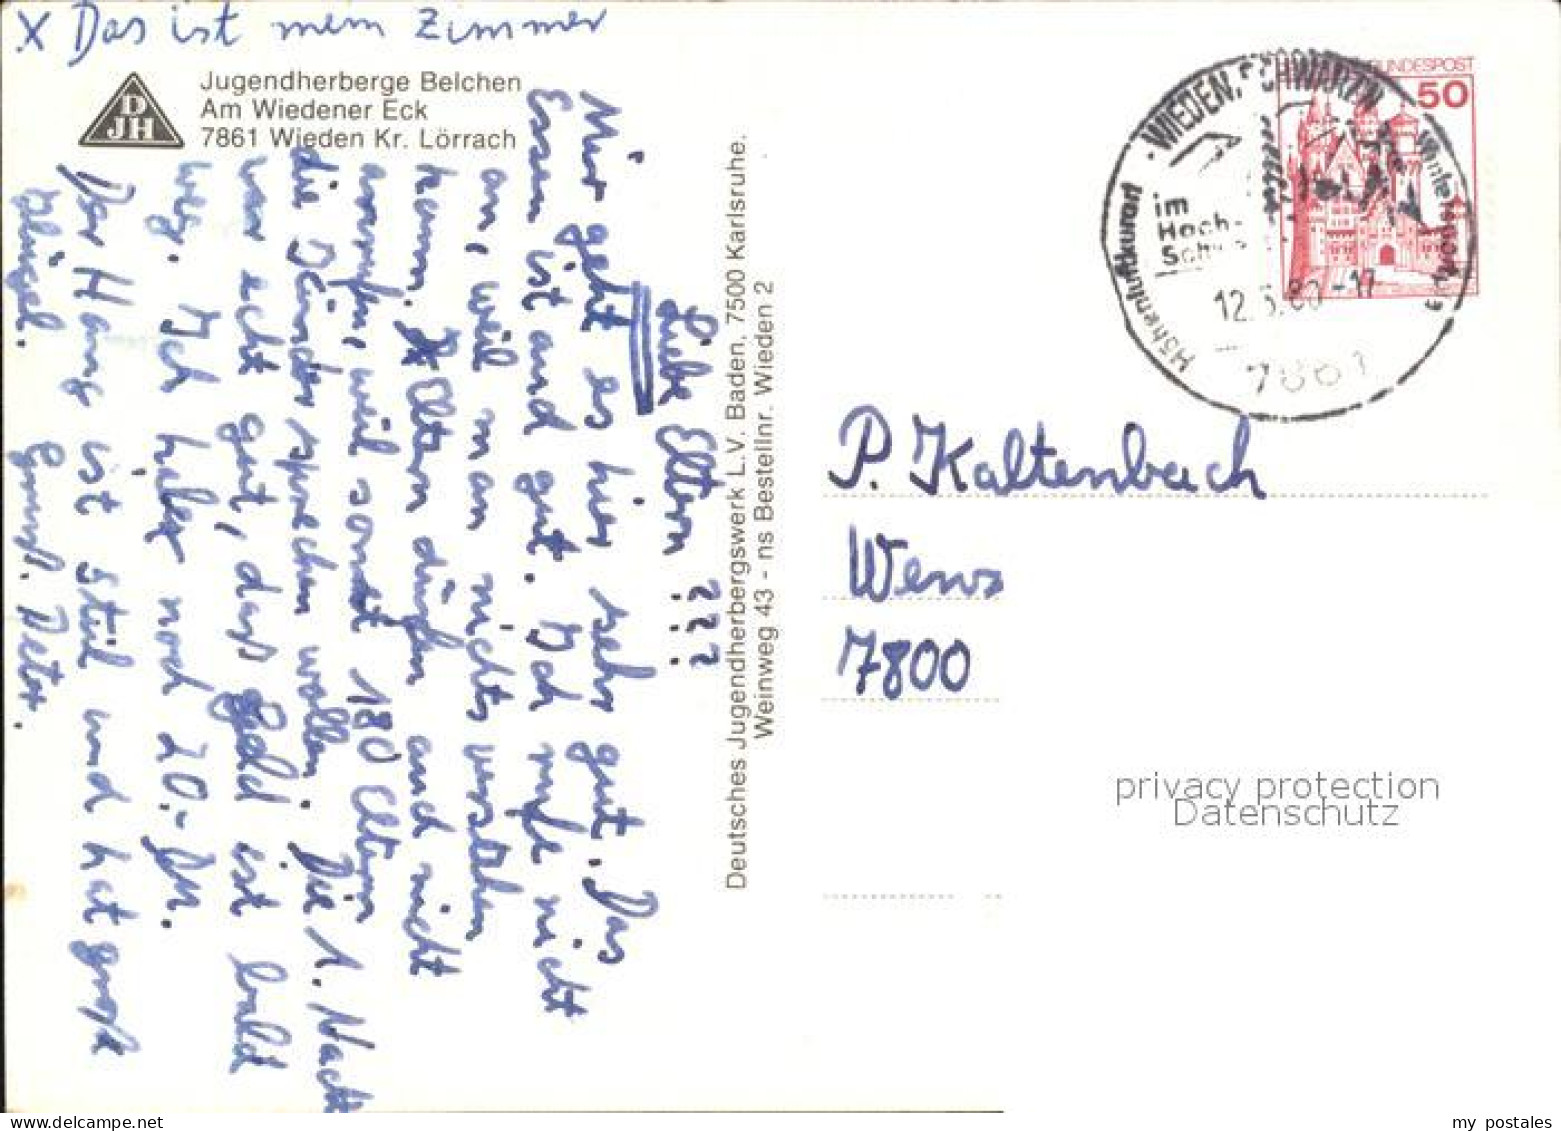 X Das ist mein Zimmer
DJH
Jugendherberge Belchen
Am Wiedener Eck
7861 Wieden Kr. Lörrach
Liebe Eltern ???
Mir geht es hier sehr gut. Das
Essen ist auch gut. Ich rufe nicht
an, weil man nichts verstehen
kann. Eltern dürfen auch nicht
anrufen, weil sonst 180 Eltern
die Kinder sprechen wollen. Die 1. Nacht
war echt gut, das Geld ist bald
weg. Ich habe noch 20.- DM.
Der Hang ist steil und hat große
Hügel. Gruß. Peter.
Deutsches Jugendherbergswerk L.V. Baden, 7500 Karlsruhe.
Weinweg 43 - ns Bestellnr. Wieden 2
BUNDESPOST
50
WIEDEN, SCHWARZW
Höhenluftkurort
Wintersport
im
Hoch-
12.5.80-17
7861
P. Kaltenbach
7800
privacy protection
Datenschutz
my postales